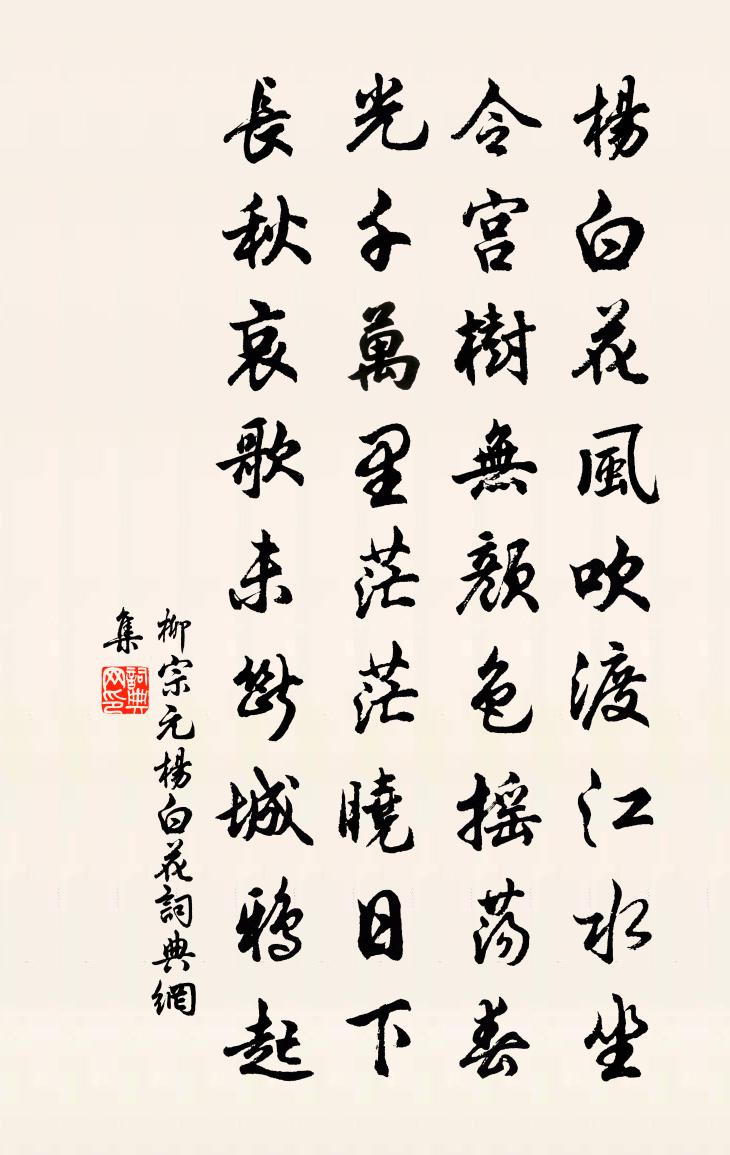 楊白花風吹渡江水坐
令宮樹無顏色搖蕩春
光千萬里茫茫曉日下
長秋哀歌未斷城鴉起
柳宗元楊白花詞典網
集
詞典
网印